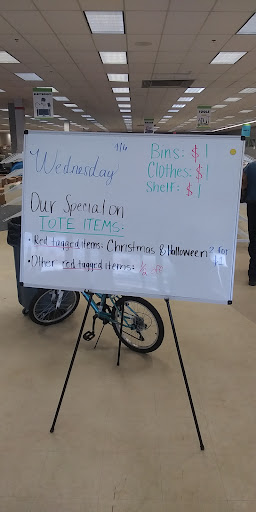 Wednesday
Bins: $1
Clothes: $1
Shelf: $1
Our Special on
TOTE ITEMS:
• Red tagged items: Christmas & Halloween 2 for
• Other red tagged items: